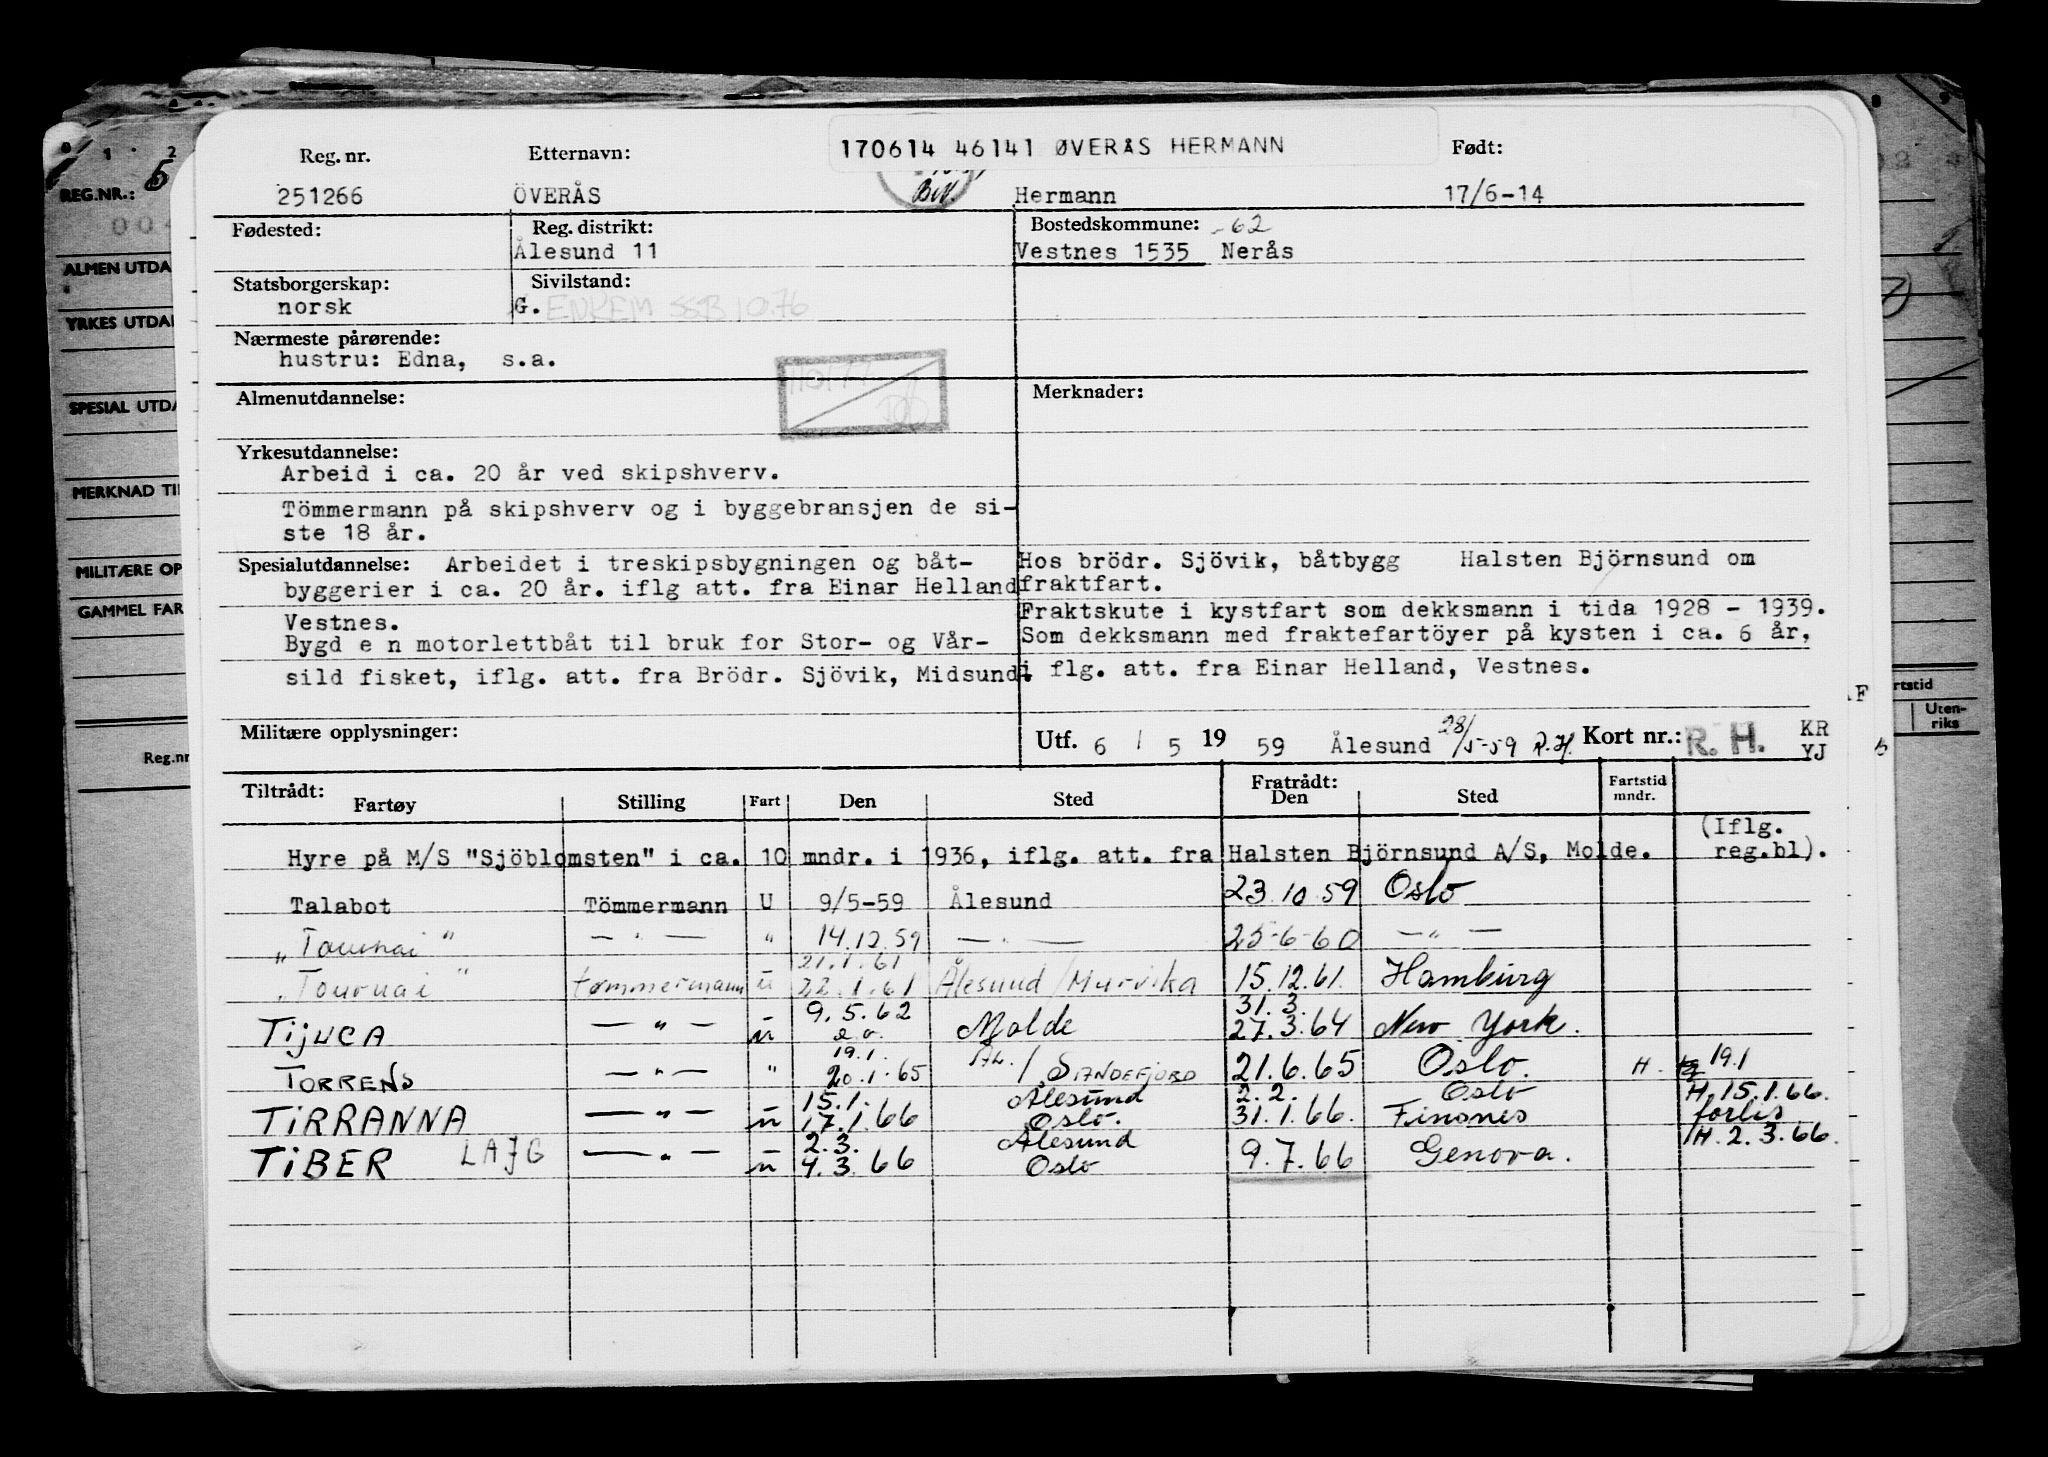 170614 46141 ØVERÅS HERMANN
Reg. nr. Etternavn: Født:
251266 ÖVERÅS Hermann 17/6-14
Fødested: Reg. distrikt: Bostedskommune: -62
Ålesund 11 Vestnes 1535 Nerås
Statsborgerskap: Sivilstand:
norsk G. ENKEM SSB 10.76
Nærmeste pårørende:
hustru: Edna, s.a.
Almenutdannelse: Merknader:
Yrkesutdannelse:
Arbeid i ca. 20 år ved skipshverv.
Tömmermann på skipshverv og i byggebransjen de si-
ste 18 år.
Spesialutdannelse: Arbeidet i treskipsbygningen og båt-
byggerier i ca. 20 år. iflg att. fra Einar Helland
Vestnes.
Bygd e n motorlettbåt til bruk for Stor- og Vår-
sild fisket, iflg. att. fra Brödr. Sjövik, Midsund.
Hos brödr. Sjövik, båtbygg Halsten Björnsund om
fraktfart.
Fraktskute i kystfart som dekksmann i tida 1928 - 1939.
Som dekksmann med fraktefartöyer på kysten i ca. 6 år,
i flg. att. fra Einar Helland, Vestnes.
Militære opplysninger: Utf. 6 / 5 19 59 Ålesund 28/5-59 R.H. Kort nr.: R. H. KR
YJ
Tiltrådt: Fratrådt: Fartstid
Fartøy Stilling Fart Den Sted Den Sted mndr.
(Iflg.
Hyre på M/S "Sjöblomsten" i ca. 10 mndr. i 1936, iflg. att. fra Halsten Björnsund A/S, Molde. reg.bl).
Talabot Tömmermann U 9/5-59 Ålesund 23.10.59 Oslo
"Tournai" — " — " 14.12.59 — " — 25-6-60 — " —
21.1.61
"Tournai" tømmermann u 22.1.61 Ålesund/Murvika 15.12.61. Hamburg
9.5.62 31.3.
TijUCA — " — u Molde 27.3.64 New York.
19.1.
TORRENS — " — " 20.1.65 ÅL. / SANDEFJORD 21.6.65 Oslo. H. 19.1
15.1. Ålesund 2.2. Oslo H. 15.1.66.
TiRRANNA — " — u 17.1.66 Oslo. 31.1.66. Finsnes forlis
2.3. Ålesund H. 2.3.66.
TiBER LAJG — " — u 4.3.66 Oslo 9.7.66 Genova.
REG.NR.:
ALMEN UTDA
YRKES UTDA
SPESIAL UTDA
MERKNAD TI
MILITÆRE OP
GAMMEL FAR
Reg.nr
rtstid
Uten-
riks